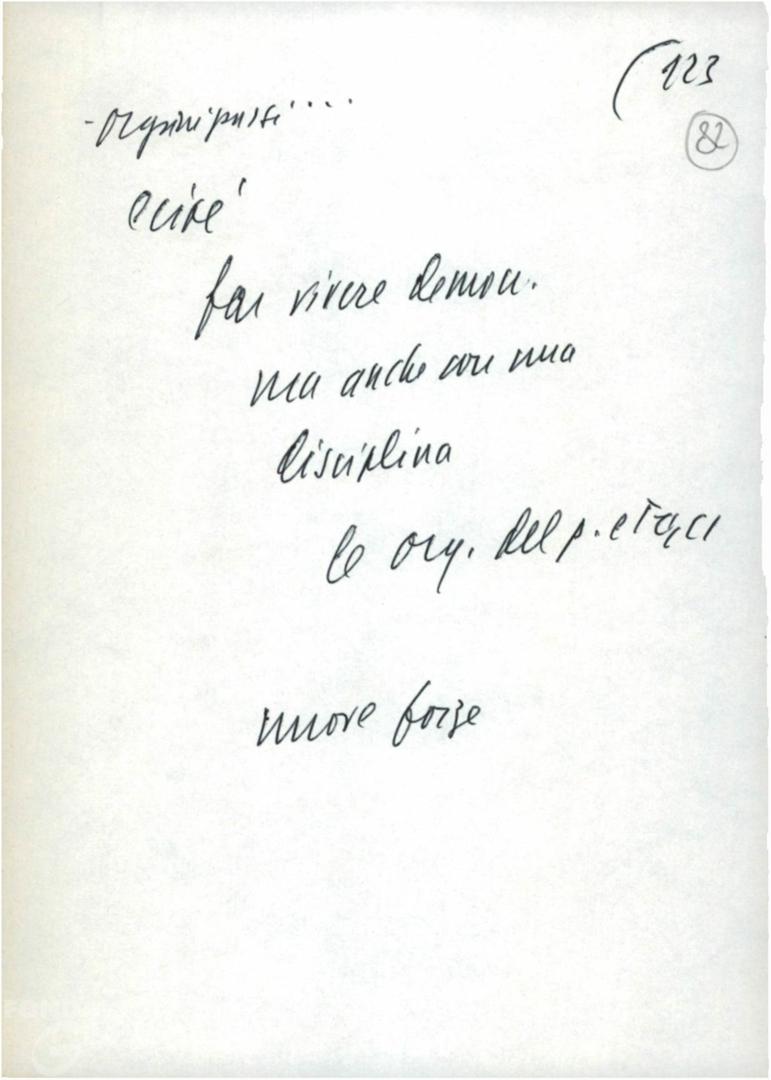 (123
82
- organi passi ....
e cioè
far vivere democr.
ma anche con una
disciplina
le org. del p. e
nuove forze